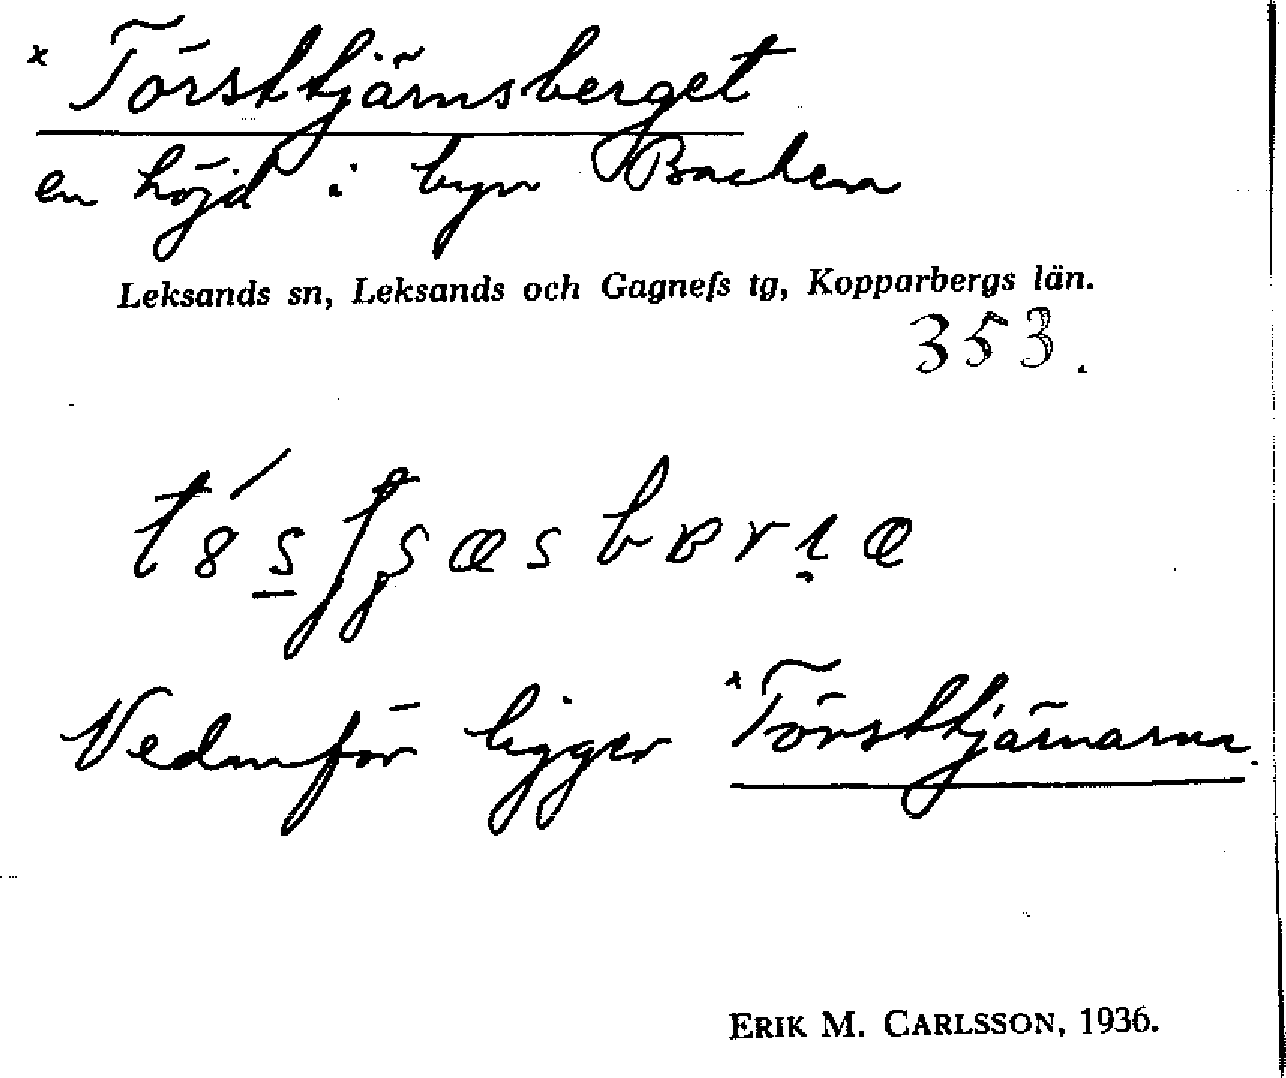 x Törsttjärnsberget
en höjd i byn Backen
Leksands sn, Leksands och Gagnefs tg, Kopparbergs län.
353.
Vedanför ligger x Törsttjärnarna.
ERIK M. CARLSSON, 1936.